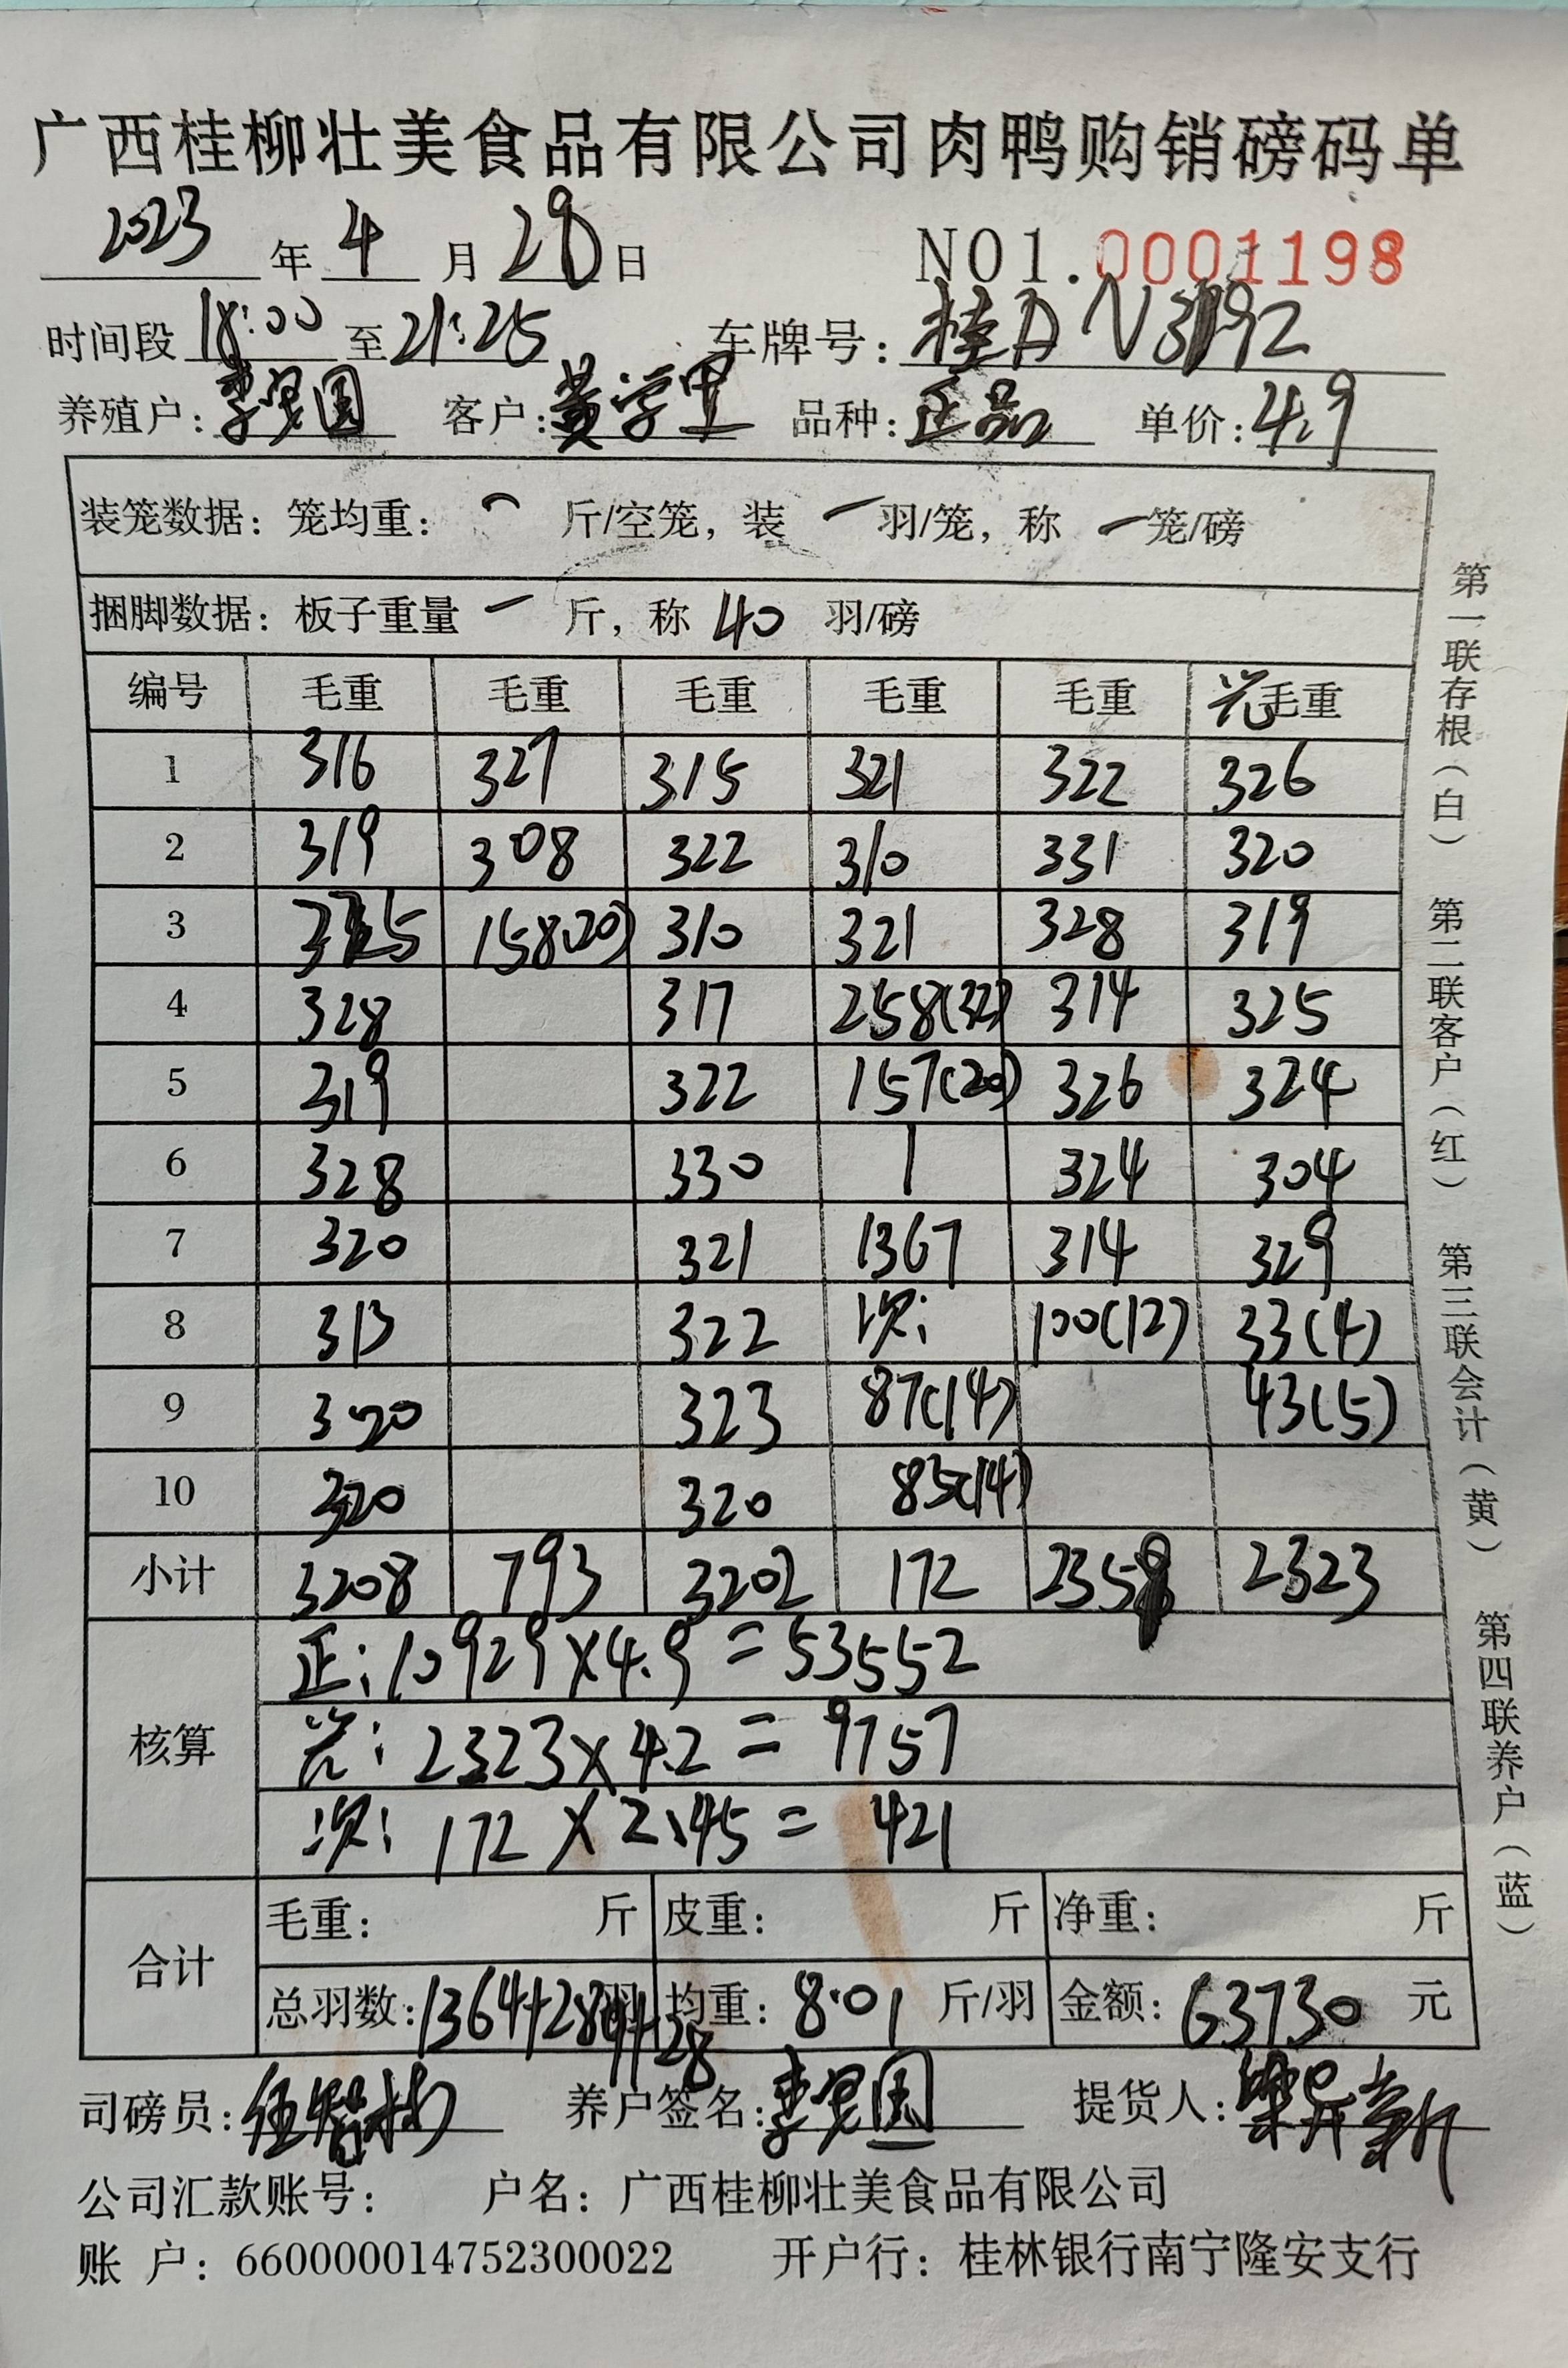 广西桂柳壮美食品有限公司肉鸭购销磅码单
2023 年 4 月 28 日 NO1.0001198
时间段 18:00 至 21:25 车牌号: 桂A N3192
养殖户: 李 国 客户: 黄学里 品种: 正品 单价: 4.9
装笼数据: 笼均重: 一 斤/空笼, 装 一 羽/笼, 称 一 笼/磅
捆脚数据: 板子重量 一 斤, 称 40 羽/磅
编号 毛重 毛重 毛重 毛重 毛重 光毛重
1 316 327 315 321 322 326
2 319 308 322 310 331 320
3 325 158(20) 310 321 328 319
4 328 317 258(32) 314 325
5 319 322 157(20) 326 324
6 328 330 1 324 304
7 320 321 1367 314 329
8 313 322 次: 100(12) 33(4)
9 320 323 87(14) 43(5)
10 320 320 85(14)
小计 3208 793 3202 172 2358 2323
核算
正: 10929×4.9=53552
光: 2323×4.2=9757
次: 172×2.45=421
合计
毛重: 斤 皮重: 斤 净重: 斤
总羽数: 1364+28 羽 均重: 8.01 斤/羽 金额: 63730 元
司磅员: 伍 养户签名: 李 国 提货人: 梁 新
公司汇款账号: 户名: 广西桂柳壮美食品有限公司
账 户: 660000014752300022 开户行: 桂林银行南宁隆安支行
第一联存根(白) 第二联客户(红) 第三联会计(黄) 第四联养户(蓝)